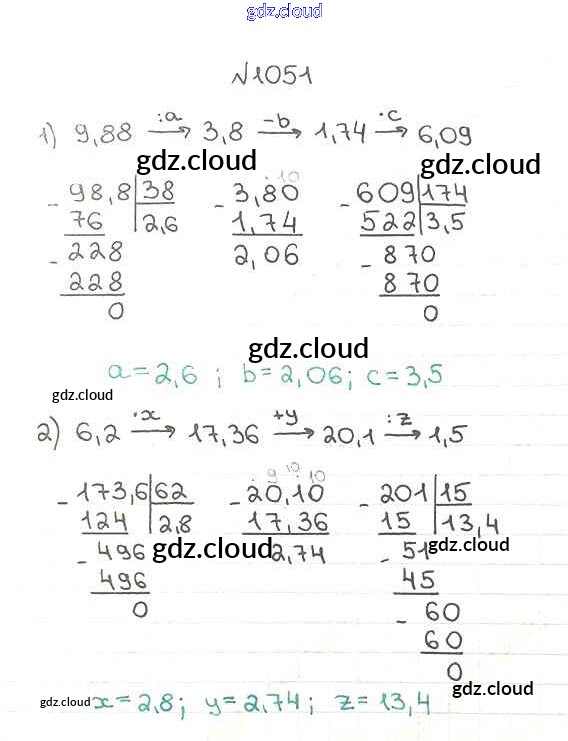 gdz.cloud
N1051
1) 9,88 →:a 3,8 →-b 1,74 →·c 6,09
gdz.cloud gdz.cloud
· 10
- 98,8 | 38 - 3,80 - 609 | 174
76 | 2,6 1,74 522 | 3,5
- 228 2,06 - 870
228 870
0 0
gdz.cloud
a = 2,6 ; b = 2,06; c = 3,5
gdz.cloud
2) 6,2 →·x 17,36 →+y 20,1 →:z 1,5
· 9 10 · 10
- 173,6 | 62 - 20,10 - 201 | 15
124 | 2,8 17,36 15 | 13,4
- 496 gdz.cloud 2,74 - 51 gdz.cloud
496 45
0 - 60
60
0
gdz.cloud
gdz.cloud x = 2,8; y = 2,74; z = 13,4